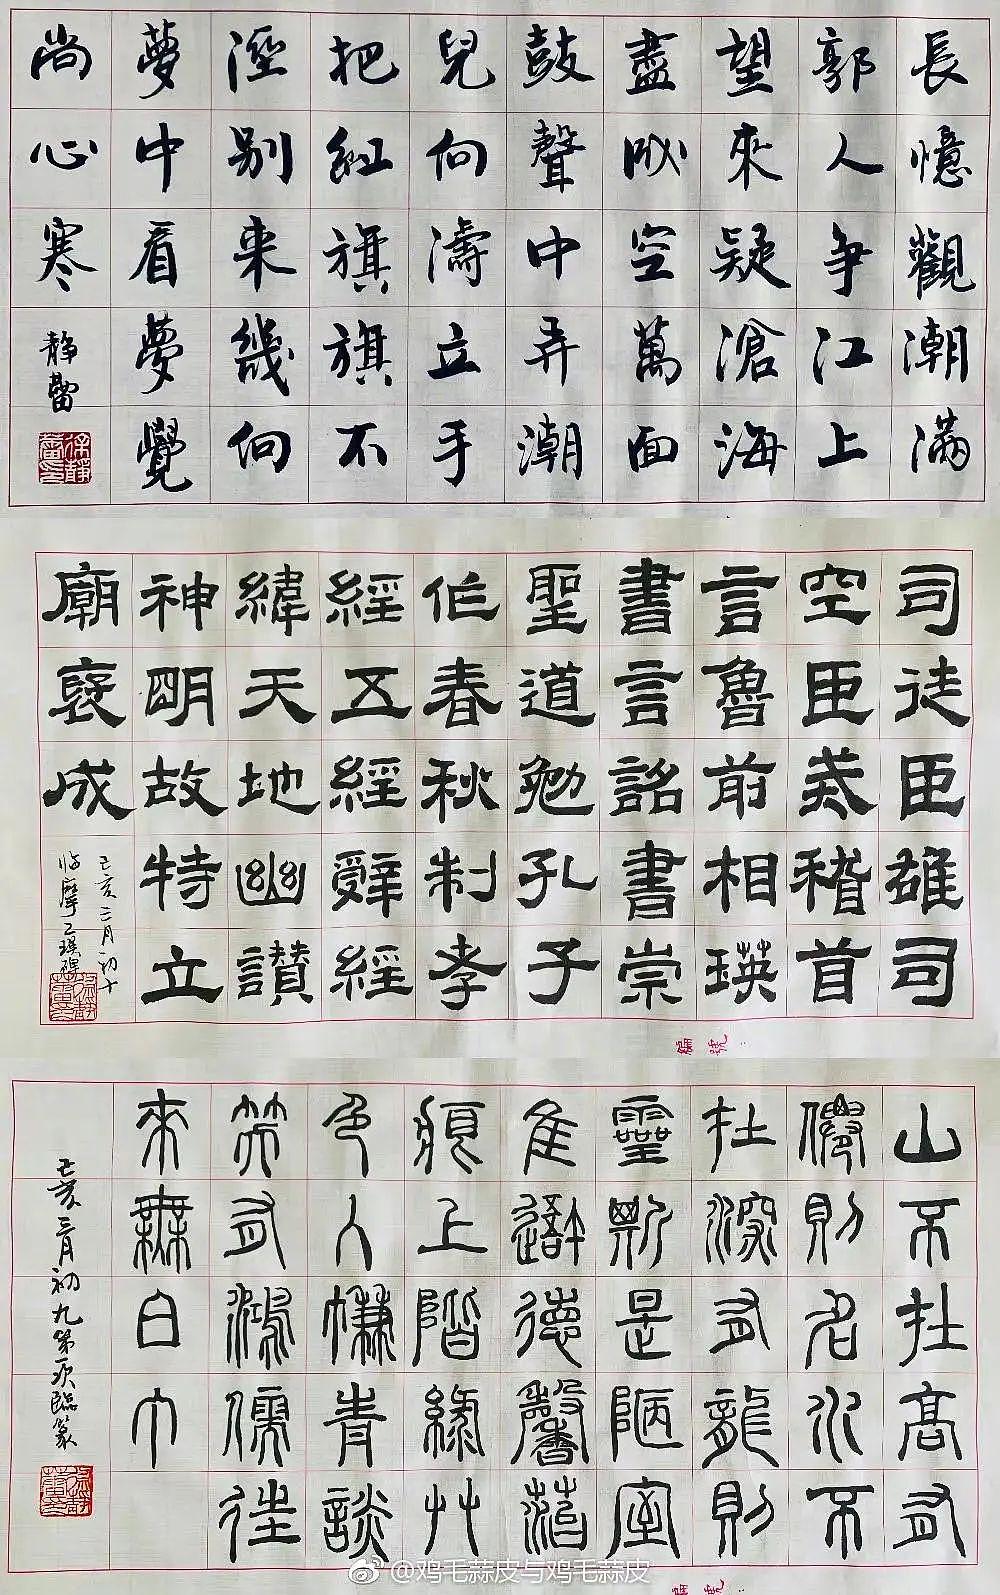 長憶觀潮滿
郭人爭江上
望來疑滄海
盡成空萬面
鼓聲中弄潮
兒向濤立手
把紅旗旗不
溼別来幾向
夢中看夢覺
尚心寒
静蕾
徐静蕾印
司徒臣雄司
空臣戒稽首
言魯前相瑛
書言詔書崇
聖道勉孔子
作春秋制孝
經五經辭經
緯天地幽讃
神明故特立
廟褒成
己亥三月初十
临摩乙瑛碑
山不在高有
僊則名水不
在深有龍則
靈斯是陋室
隹吾德馨苔
痕上階緑艸
色入㡘青談
笑有鴻儒往
來無白丁
己亥三月初九第一次臨篆
@鸡毛蒜皮与鸡毛蒜皮